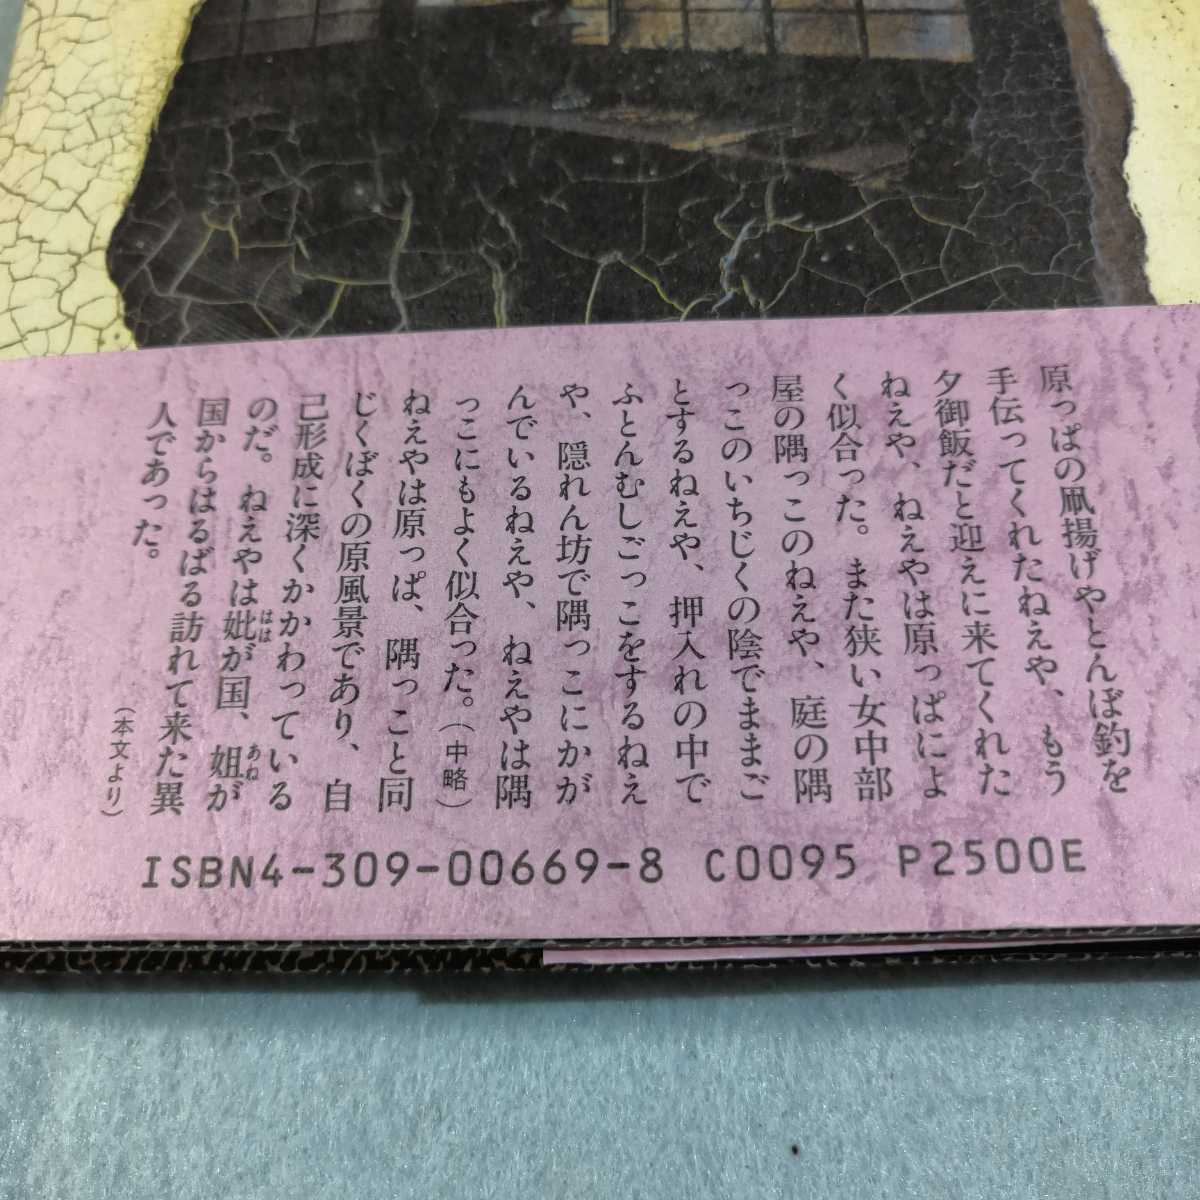 原っぱの凧揚げやとんぼ釣を
手伝ってくれたねえや、もう
夕御飯だと迎えに来てくれた
ねえや、ねえやは原っぱによ
く似合った。また狭い女中部
屋の隅っこのねえや、庭の隅
っこのいちじくの陰でままご
とするねえや、押入れの中で
ふとんむしごっこをするねえ
や、隠れん坊で隅っこにかが
んでいるねえや、ねえやは隅
っこにもよく似合った。（中略）
ねえやは原っぱ、隅っこと同
じくぼくの原風景であり、自
己形成に深くかかわっている
のだ。ねえやは妣が国、姐が
国からはるばる訪れて来た異
人であった。
（本文より）
ISBN4-309-00669-8 C0095 P2500E